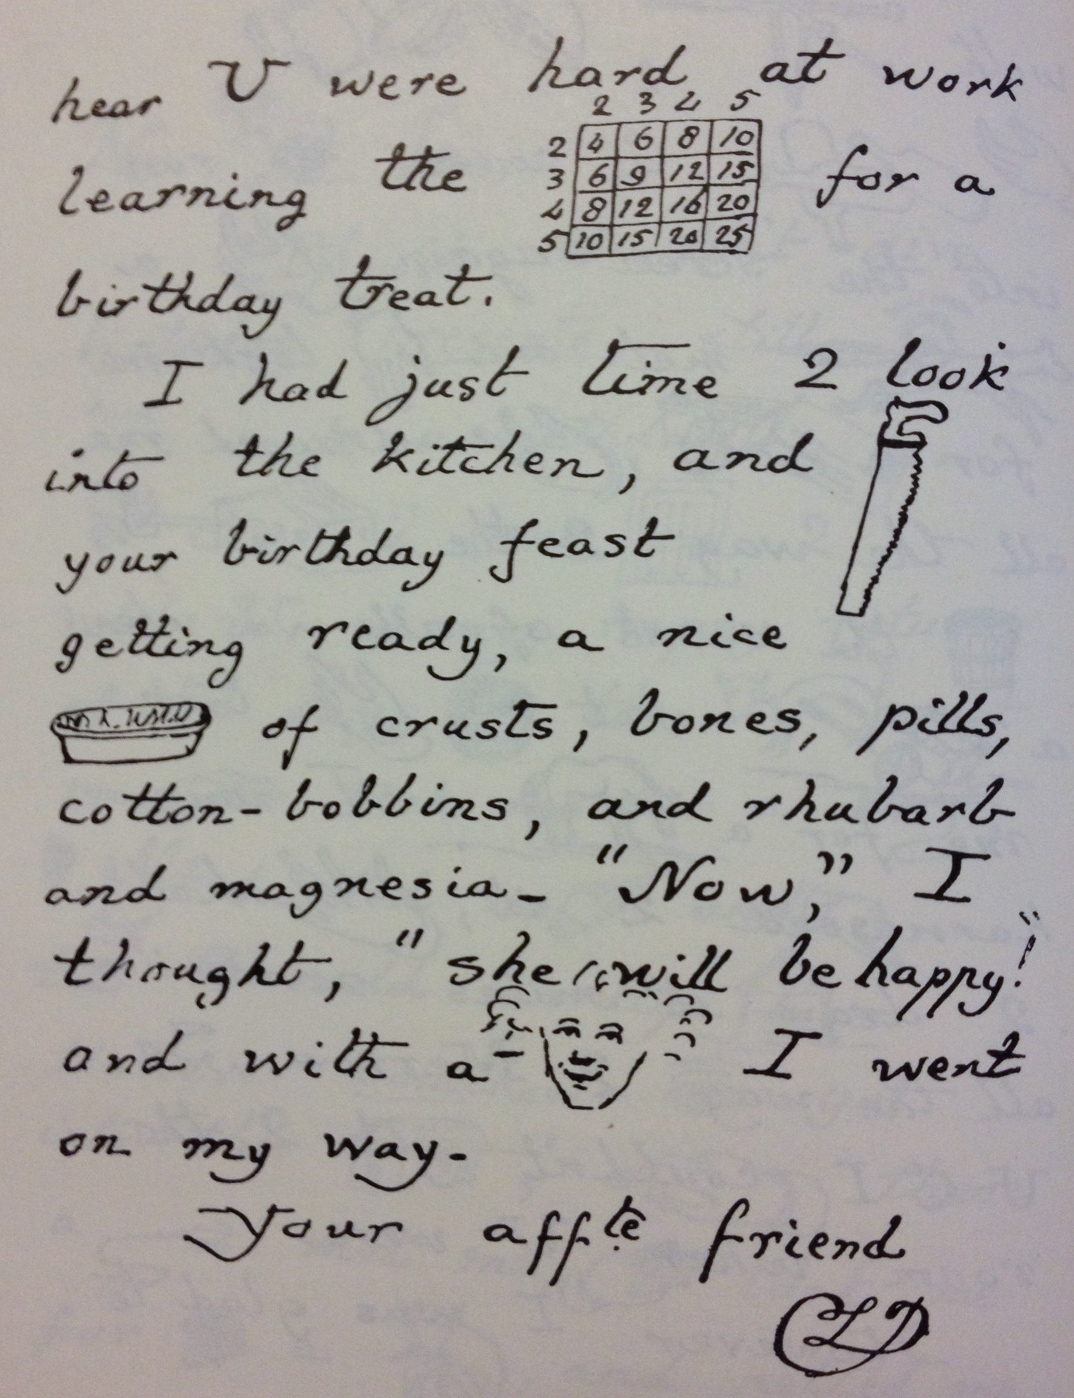 hear U were hard at work
2 3 4 5
2 4 6 8 10
learning the for a
3 6 9 12 15
4 8 12 16 20
5 10 15 20 25
birthday treat.
I had just time 2 look
into the kitchen, and
your birthday feast
getting ready, a nice
of crusts, bones, pills,
cotton-bobbins, and rhubarb
and magnesia- "Now," I
thought, "she will be happy!"
and with a I went
on my way.
Your affte friend
CLD